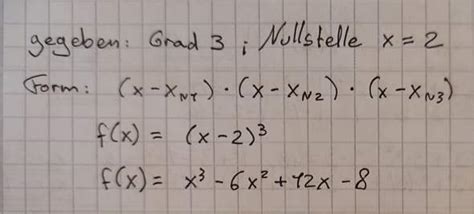 gegeben: Grad 3 ; Nullstelle x = 2
Form: (x - x_N1) · (x - x_N2) · (x - x_N3)
f(x) = (x - 2)³
f(x) = x³ - 6x² + 12x - 8